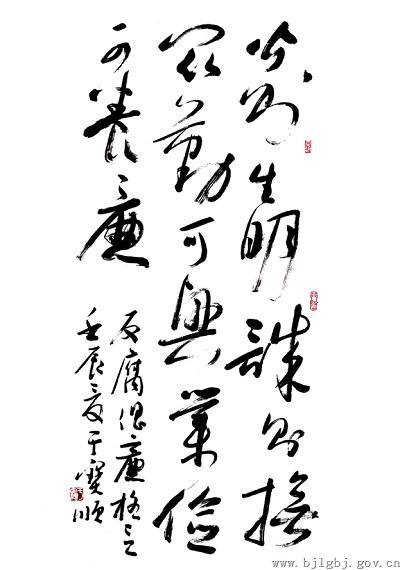 公则生明誠则撫
眾勤可興業儉
可養廉
反腐倡廉格言
壬辰夏于寶順
www.bjlgbj.gov.cn